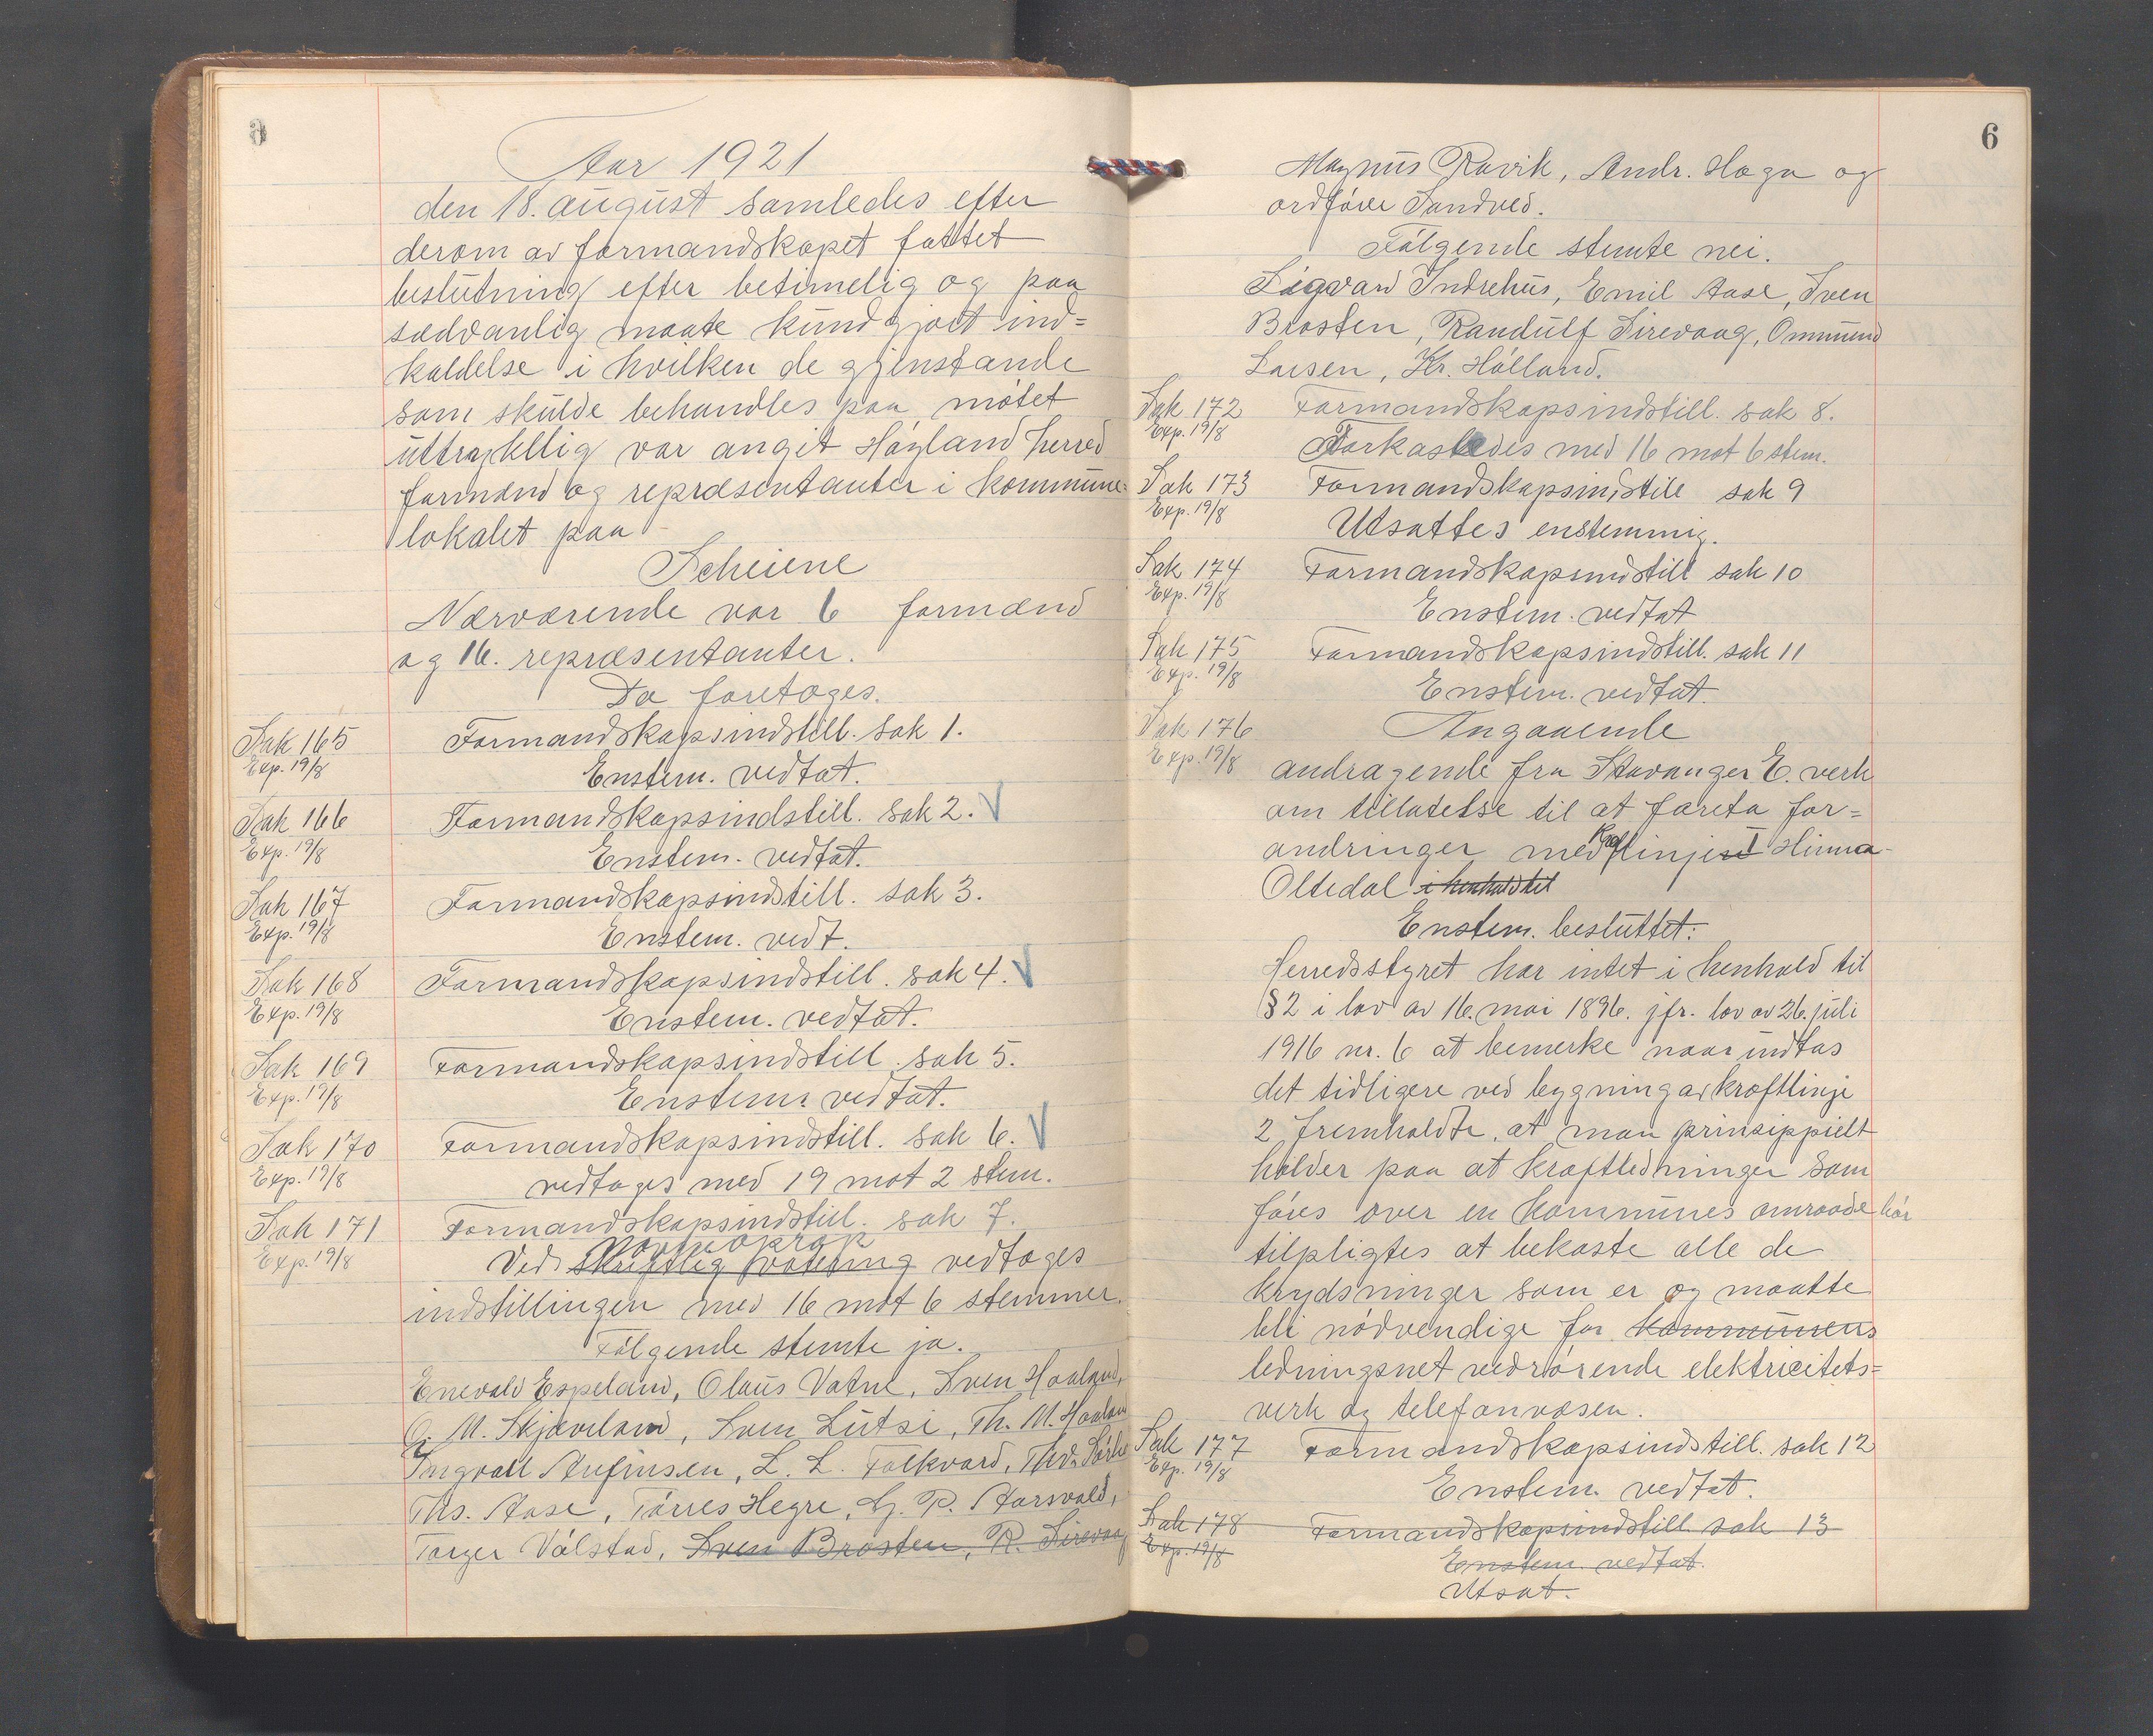 Aar 1921
den 18. august samledes efter
derom av formandskapet fattet
beslutning efter betimelig og paa
sædvanlig maate kundgjort ind=
kaldelse i hvilken de gjenstande
som skulde behandles paa møtet
uttrykkelig var angit Høyland herred
formænd og repræsentanter i kommune-
lokalet paa
Scheiene
Nærværende var 6 formænd
og 16. repræsentanter.
Da foretoges.
Sak 165 Formandskapsindstill. sak 1.
Exp. 19/8 Enstem. vedtat.
Sak 166 Formandskapsindstill. sak 2. V
Exp. 19/8 Enstem. vedtat.
Sak 167 Formandskapsindstill. sak 3.
Exp. 19/8 Enstem. vedt.
Sak 168 Formandskapsindstill. sak 4. V
Exp. 19/8 Enstem. vedtat.
Sak 169 Formandskapsindstill. sak 5.
Exp. 19/8 Enstem. vedtat.
Sak 170 Formandskapsindstill. sak 6. V
Exp. 19/8 vedtoges med 19 mot 2 stem.
Sak 171 Formandskapsindstill. sak 7.
Navneoprop
Exp. 19/8 Ved skriftlig votering vedtoges
indstillingen med 16 mot 6 stemmer.
Følgende stemte ja.
Enevald Espeland, Olaus Vatne, Sven Haaland,
O. M. Skjæveland, Sven Lutsi, Th. M. Haaland
Ingvall Aufinsen, L. L. Folkvord, Thv.
Ths. Aase, Tørres Hegre, G. P. Aarsvold,
Torger Vølstad, Sven Brosten, R. Sirevaag
6
Magnus Ravik, Andr. Hagn og
ordfører Sandved.
Følgende stemte nei.
Sigvard Indrehus, Emil Aase, Sven
Brosten, Randulf Sirevaag, Ommund
Larsen, Kr. Hølland.
Sak 172 Formandskapsindstill. sak 8.
Exp. 19/8 Forkastedes med 16 mot 6 stem.
Sak 173 Formandskapsindstill sak 9
Exp. 19/8 Utsattes enstemmig.
Sak 174 Formandskapsindstill sak 10
Exp. 19/8 Enstem. vedtat
Sak 175 Formandskapsindstill. sak 11
Exp. 19/8 Enstem. vedtat.
Sak 176 Angaaende
Exp. 19/8 andragende fra Stavanger E. verk
om tillatelse til at foreta for=
andringer med linjen I Hinna-
Oltedal i henhold til
Enstem. besluttet:
Herredsstyret har intet i henhold til
§ 2 i lov av 16. mai 1896. jfr. lov av 26. juli
1916 nr. 6 at bemerke naar indtas
det tidligere ved bygning av kraftlinje
2 fremholdte, at man prinsippielt
holder paa at kraftledninger som
føres over en kommunes omraade bør
tilpligtes at bekoste alle de
krydsninger som er og maatte
bli nødvendige for kommunens
ledningsnet vedrørende elektricitets=
verk og telefonvæsen.
Sak 177 Formandskapsindstill. sak 12
Exp. 19/8 Enstem. vedtat.
Sak 178 Formandskapsindstill sak 13
Exp. 19/8 Enstem. vedtat.
Utsat.